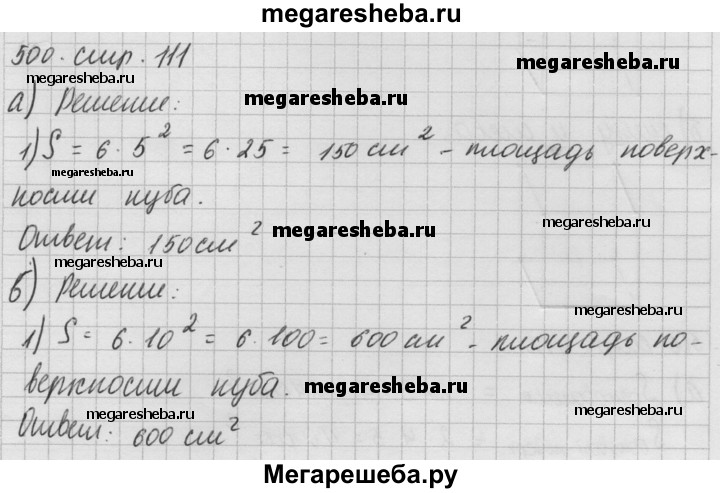 megaresheba.ru
500. стр. 111
megaresheba.ru
megaresheba.ru
а) Решение:
megaresheba.ru
1) S = 6 · 5² = 6 · 25 = 150 см² - площадь поверх-
megaresheba.ru
ности куба.
megaresheba.ru
Ответ: 150 см²
megaresheba.ru
megaresheba.ru
б) Решение:
megaresheba.ru
1) S = 6 · 10² = 6 · 100 = 600 см² - площадь по-
верхности куба.
megaresheba.ru
megaresheba.ru
megaresheba.ru
Ответ: 600 см²
Мегарешеба.ру